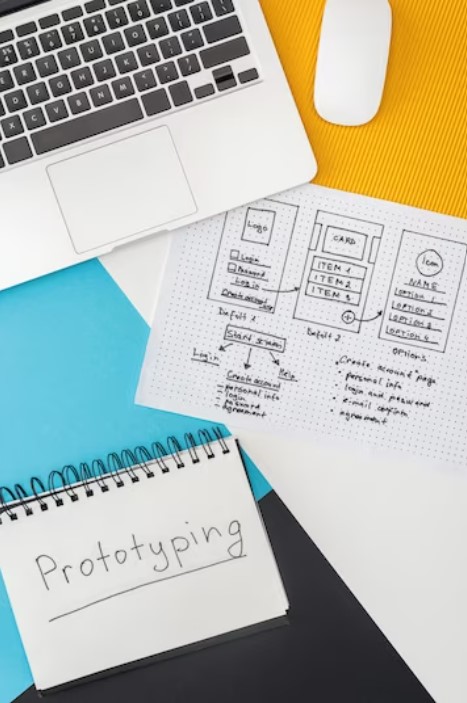 Logo
Login
Password
Log in
Create account
Defolt 1
CARD
ITEM 1
ITEM 2
ITEM 3
Defolt 2
Icon
NAME
OPTION 2
OPTION 3
OPTION 4
OPTIONS
Start screen
Login
Create account
Help
personal info
login
password
Agreement
"Create account" page
personal info
login and password
e-mail confirm
agreement
Prototyping